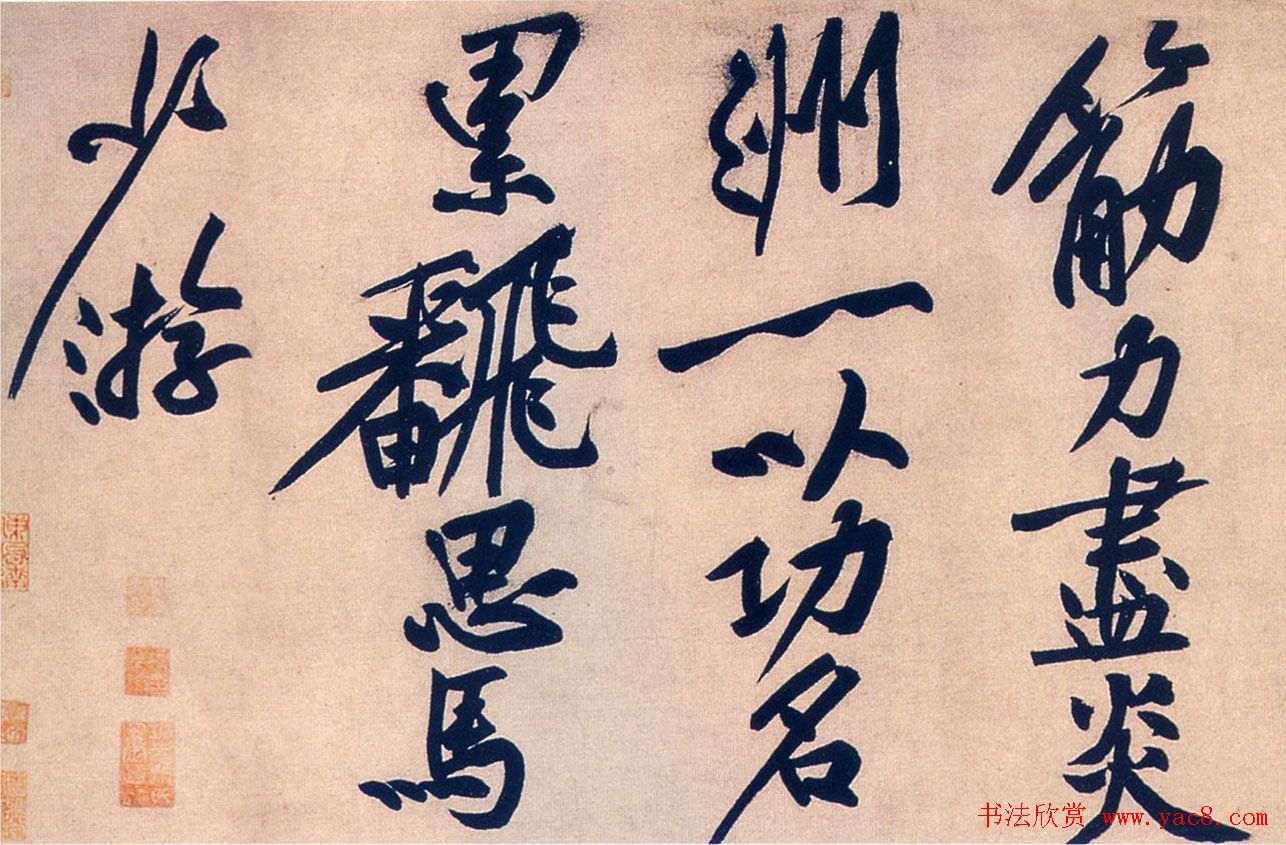 筋力盡炎
洲一以功名
累翻思馬
少游
书法欣赏 www.yac8.com